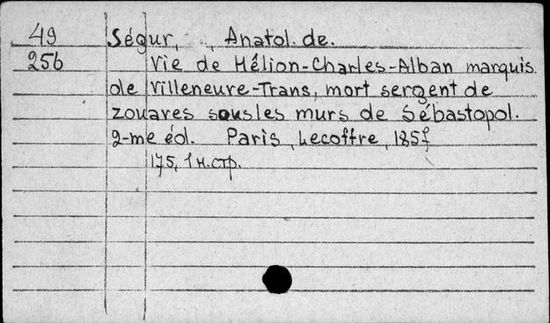 49 Ségur, , Anatol. de.
256 Vie de Hélion-Charles-Alban marquis
de Villeneuve-Trans, mort sergent de
zouaves sous les murs de Sébastopol.
2-me éd. Paris, Lecoffre,
175, 1 н.стр.